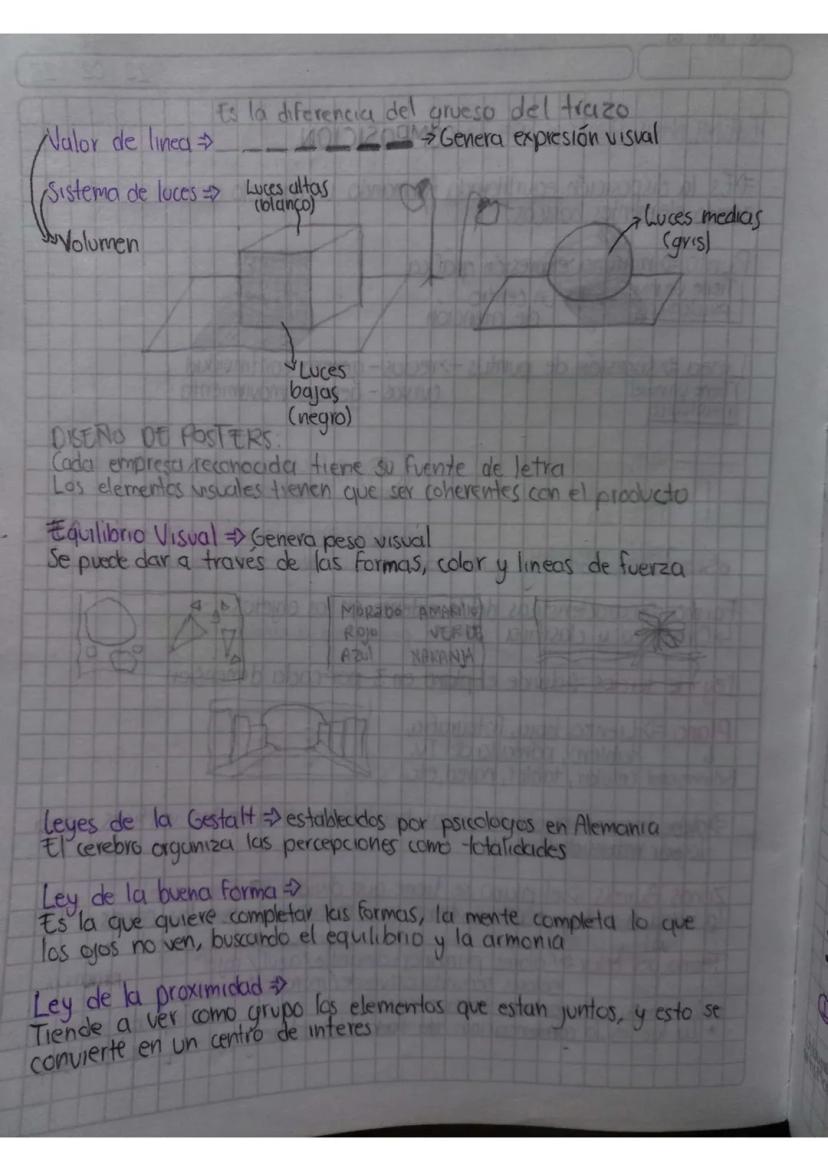 Es la diferencia del grueso del trazo
Valor de linea ⇒ → Genera expresión visual
Sistema de luces ⇒
Luces altas
(blanco)
Volumen
Luces medias
(gris)
Luces
bajas
(negro)
DISEÑO DE POSTERS:
Cada empresa reconocida tiene su fuente de letra
Los elementos visuales tienen que ser coherentes con el producto
Equilibrio Visual ⇒ Genera peso visual
Se puede dar a través de las formas, color y lineas de fuerza
MORADO AMARILLO
ROJO VERDE
AZUL NARANJA
Leyes de la Gestalt ⇒ establecidos por psicologos en Alemania
El cerebro organiza las percepciones como totalidades
Ley de la buena forma ⇒
Es la que quiere completar las formas, la mente completa lo que
los ojos no ven, buscando el equilibrio y la armonia
Ley de la proximidad ⇒
Tiende a ver como grupo los elementos que estan juntos, y esto se
convierte en un centro de interes